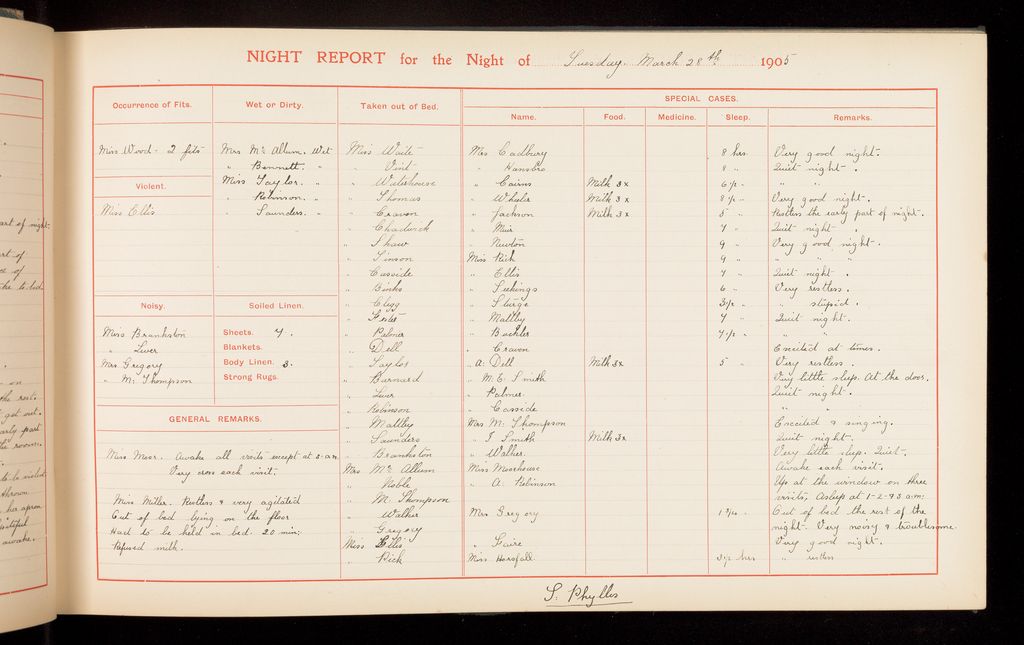 NIGHT REPORT for the Night of Tuesday. March 28th 1905
Occurrence of Fits.
Miss Wood - 2 fits
Violent.
Miss Ellis
Noisy.
Miss Brankston
" Liver
Mrs Gregory
" M. Thompson
Wet or Dirty.
Mrs Mc Allum. Wet
" Bennett. "
Miss Taylor. "
" Robinson. "
" Saunders. "
Soiled Linen.
Sheets. 7.
Blankets.
Body Linen. 3.
Strong Rugs.
GENERAL REMARKS.
Miss Moor. Awake all visits except at 2 a.m.
Very cross each visit.
Miss Miller. Restless & very agitated
Out of bed lying on the floor.
Had to be held in bed. 20 min:
Refused milk.
Taken out of Bed.
Miss Waite
" Vint
" Waterhouse
" Thomas
" Craven
" Chadwick
" Shaw
" Simson
" Casside
" Binks
" Clegg
" Palmer
" Dell
" Taylor
" Barnard
" Liver
" Robinson
" Maltby
" Saunders
" Brankston
Mrs Mc Allum
" Noble
" M. Thompson
" Walker
" Gregory
Miss Ellis
" Rick
SPECIAL CASES.
Name. Food. Medicine. Sleep. Remarks.
Mrs Cadbury 8 hrs Very good night.
" Hansbro 8 " Quiet night.
" Cairns Milk 3x 6½ " " "
" Wheeler Milk 3x 8½ " Very good night.
" Jackson Milk 3x 5 " Restless the early part of night.
" Muir 7 " Quiet night.
" Newton 9 " Very good night.
Miss Rick 9 " " " "
" Ellis 7 " Quiet night.
" Seekings 6 " Very restless.
" Sturge 3½ " " stupid.
" Maltby 7 " Quiet night.
" Buckler 7½ " " "
" Craven Excited at times.
" A: Dell Milk 3x 5 " Very restless.
" M. E. Smith Very little sleep. At the door.
" Palmer Quiet night.
" Casside " "
Mrs M. Thompson Excited & singing.
" J Smith Milk 3x Quiet night.
" Walker Very little sleep. Quiet.
Miss Moorhouse Awake each visit.
" A. Robinson Up at the window on three
visits. Asleep at 1-2-+3 a.m:
Mrs Gregory 1½ " Out of bed the rest of the
night. Very noisy & troublesome.
" Faire Very good night.
Miss Horsfall 3½ hrs " restless
S. Phyllis